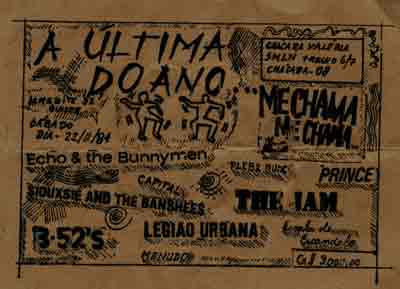 A ÚLTIMA
DO ANO
CHÁCARA VALÉRIA
SMLN TRECHO 6/7
CHÁCARA-08
SÁBADO
DIA-22/12/84
ME CHAMA
ME CHAMA
Echo & the Bunnymen
PLEBE RUDE
PRINCE
CAPITAL
SIOUXSIE AND THE BANSHEES
THE JAM
B-52'S
LEGIÃO URBANA
MENUDO